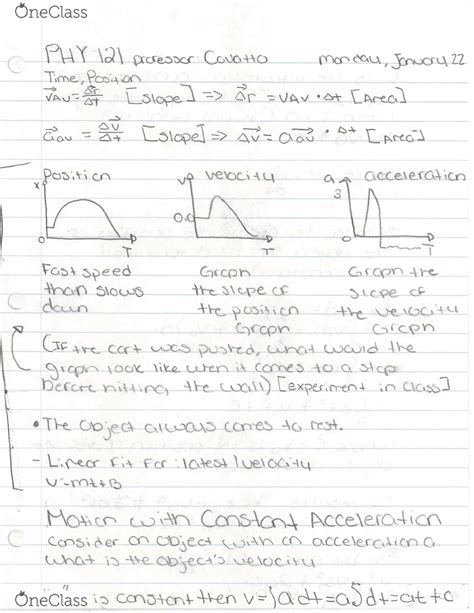 OneClass
PHY 121 professor Cavatto monday, January 22
Time, Position
v⃗av = Δr⃗/Δt [Slope] => Δr⃗ = vAv · Δt [Area]
a⃗av = Δv⃗/Δt [Slope] => Δv⃗ = a⃗av · Δt [Area]
Position velocity acceleration
x v a
3
0.0
0 0 0
T T T
Fast speed Graph Graph the
than slows the slope of slope of
down the position the velocity
Graph Graph
(If the cart was pushed, what would the
graph look like when it comes to a stop
before hitting the wall) [experiment in class]
• The object always comes to rest.
- Linear Fit For: latest/velocity
v=mt+B
Motion with Constant Acceleration
consider an object with an acceleration a.
what is the object's velocity
OneClass is constant then v=∫adt=a∫dt=at+c